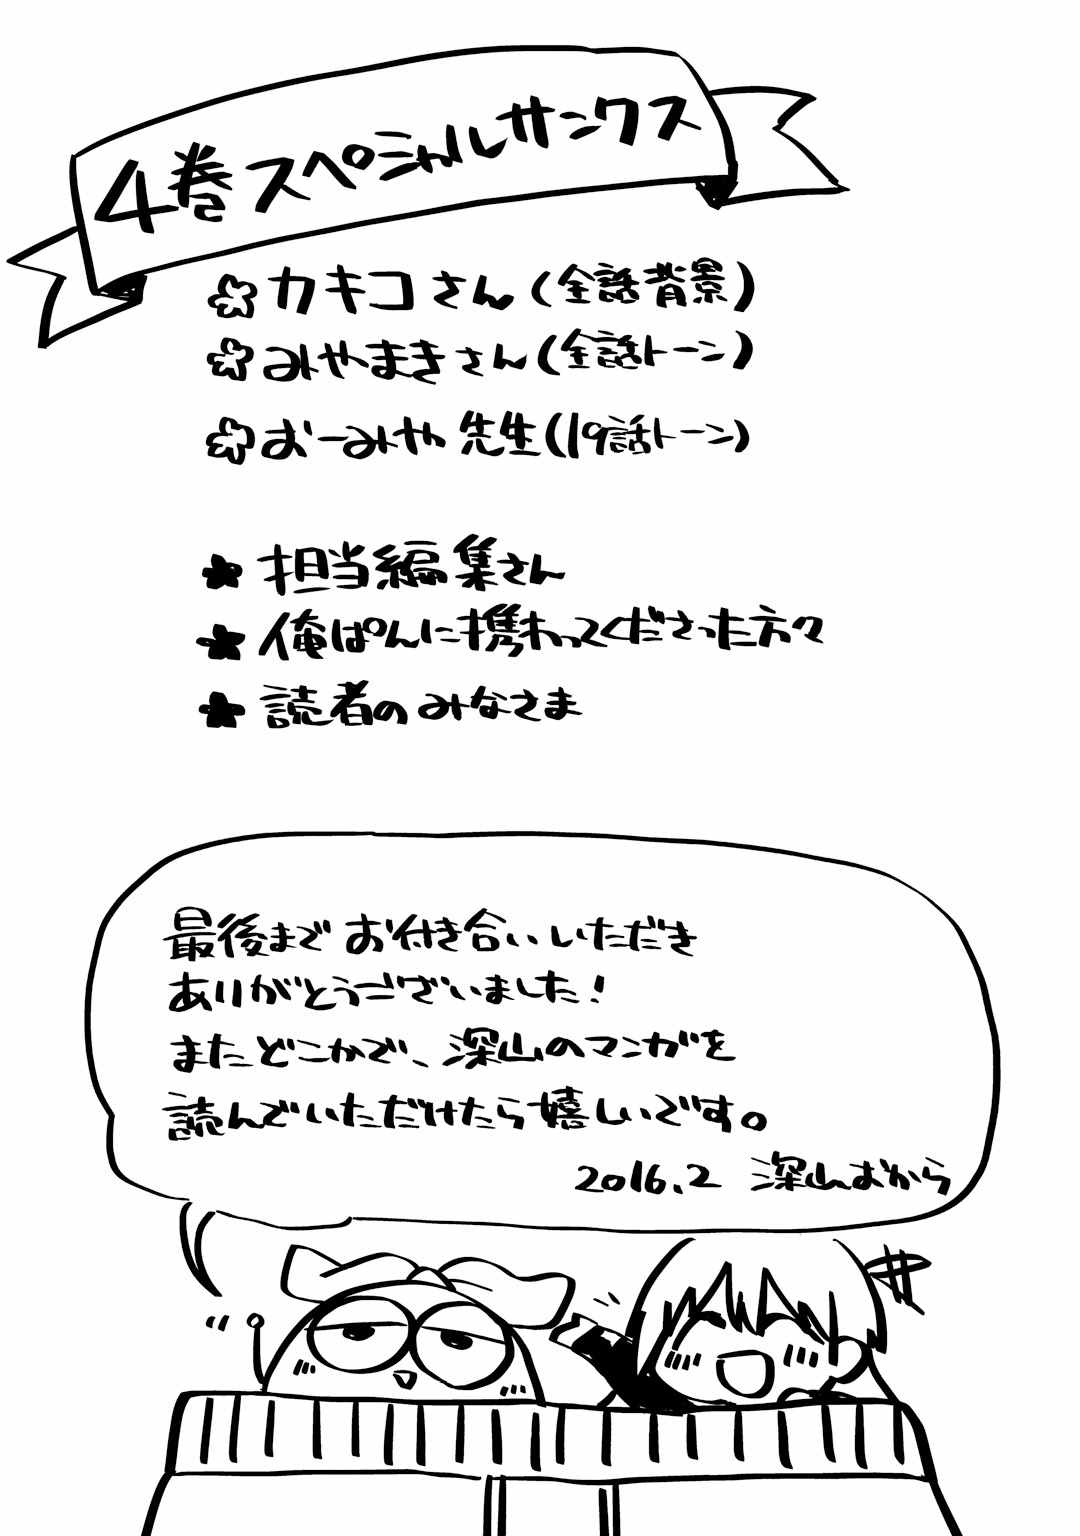 4巻スペシャルサンクス
カキコさん(全話背景)
みやまきさん(全話トーン)
おーみや先生(19話トーン)
担当編集さん
俺ぱんに携わってくださった方々
読者のみなさま
最後までお付き合いいただき
ありがとうございました!
またどこかで、深山のマンガを
読んでいただけたら嬉しいです。
2016.2 深山おから